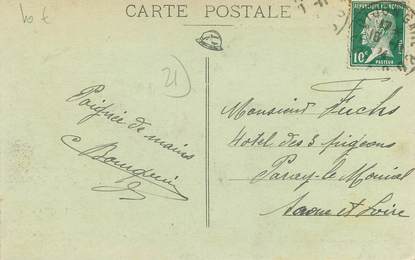 CARTE POSTALE
10 €
21
10c
PASTEUR
Poignée de mains
C Bourguin
Monsieur Fuchs
Hotel des 3 pigeons
Paray-le Monial
Saone et Loire